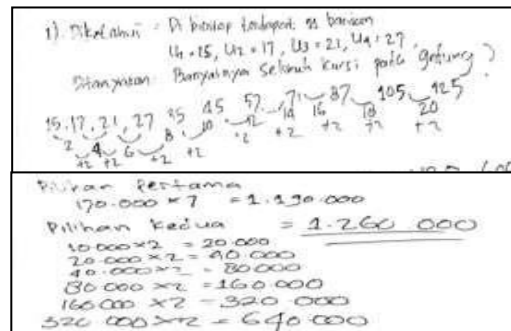 1). Diketahui = Di bioskop terdapat barisan
U1 = 15, U2 = 17, U3 = 21, U4 = 27
Ditanyakan: Banyaknya seluruh kursi pada gedung?
15, 17, 21, 27 35 45 57 71 87 105 125
2 4 6 8 10 12 14 16 18 20
+2 +2 +2 +2 +2 +2 +2 +2 +2
Pilihan Pertama
170.000 × 7 = 1.190.000
Pilihan kedua = 1.260 000
10.000 × 2 = 20.000
20.000 × 2 = 40.000
40.000 × 2 = 80.000
80 000 × 2 = 160.000
160 000 × 2 = 320 000
320 000 × 2 = 640.000